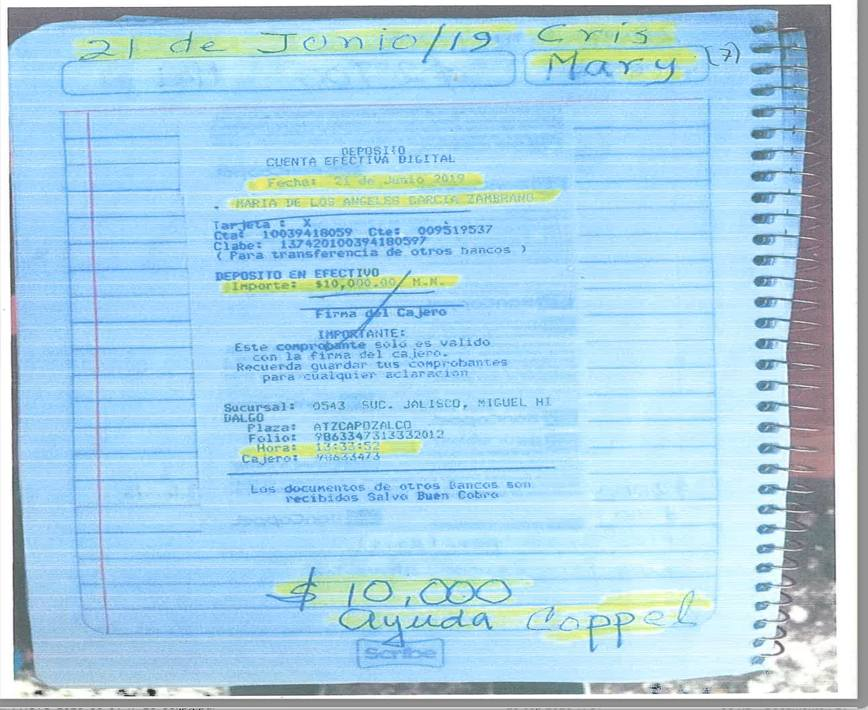 21 de Junio/19 Cris
Mary (7)
DEPOSITO
CUENTA EFECTIVA DIGITAL
Fecha: 21 de Junio 2019
MARIA DE LOS ANGELES GARCIA ZAMBRANO
Tarjeta : X
Cta: 10039418059 Cte: 009519537
Clabe: 137420100394180597
( Para transferencia de otros bancos )
DEPOSITO EN EFECTIVO
Importe: $10,000.00 M.N.
Firma del Cajero
IMPORTANTE:
Este comprobante solo es valido
con la firma del cajero.
Recuerda guardar tus comprobantes
para cualquier aclaracion
Sucursal: 0543 SUC. JALISCO, MIGUEL HI
DALGO
Plaza: ATZCAPOZALCO
Folio: 98633473133332012
Hora: 13:33:52
Cajero: 98633473
Los documentos de otros Bancos son
recibidos Salvo Buen Cobro
$ 10,000
ayuda Coppel
Scribe